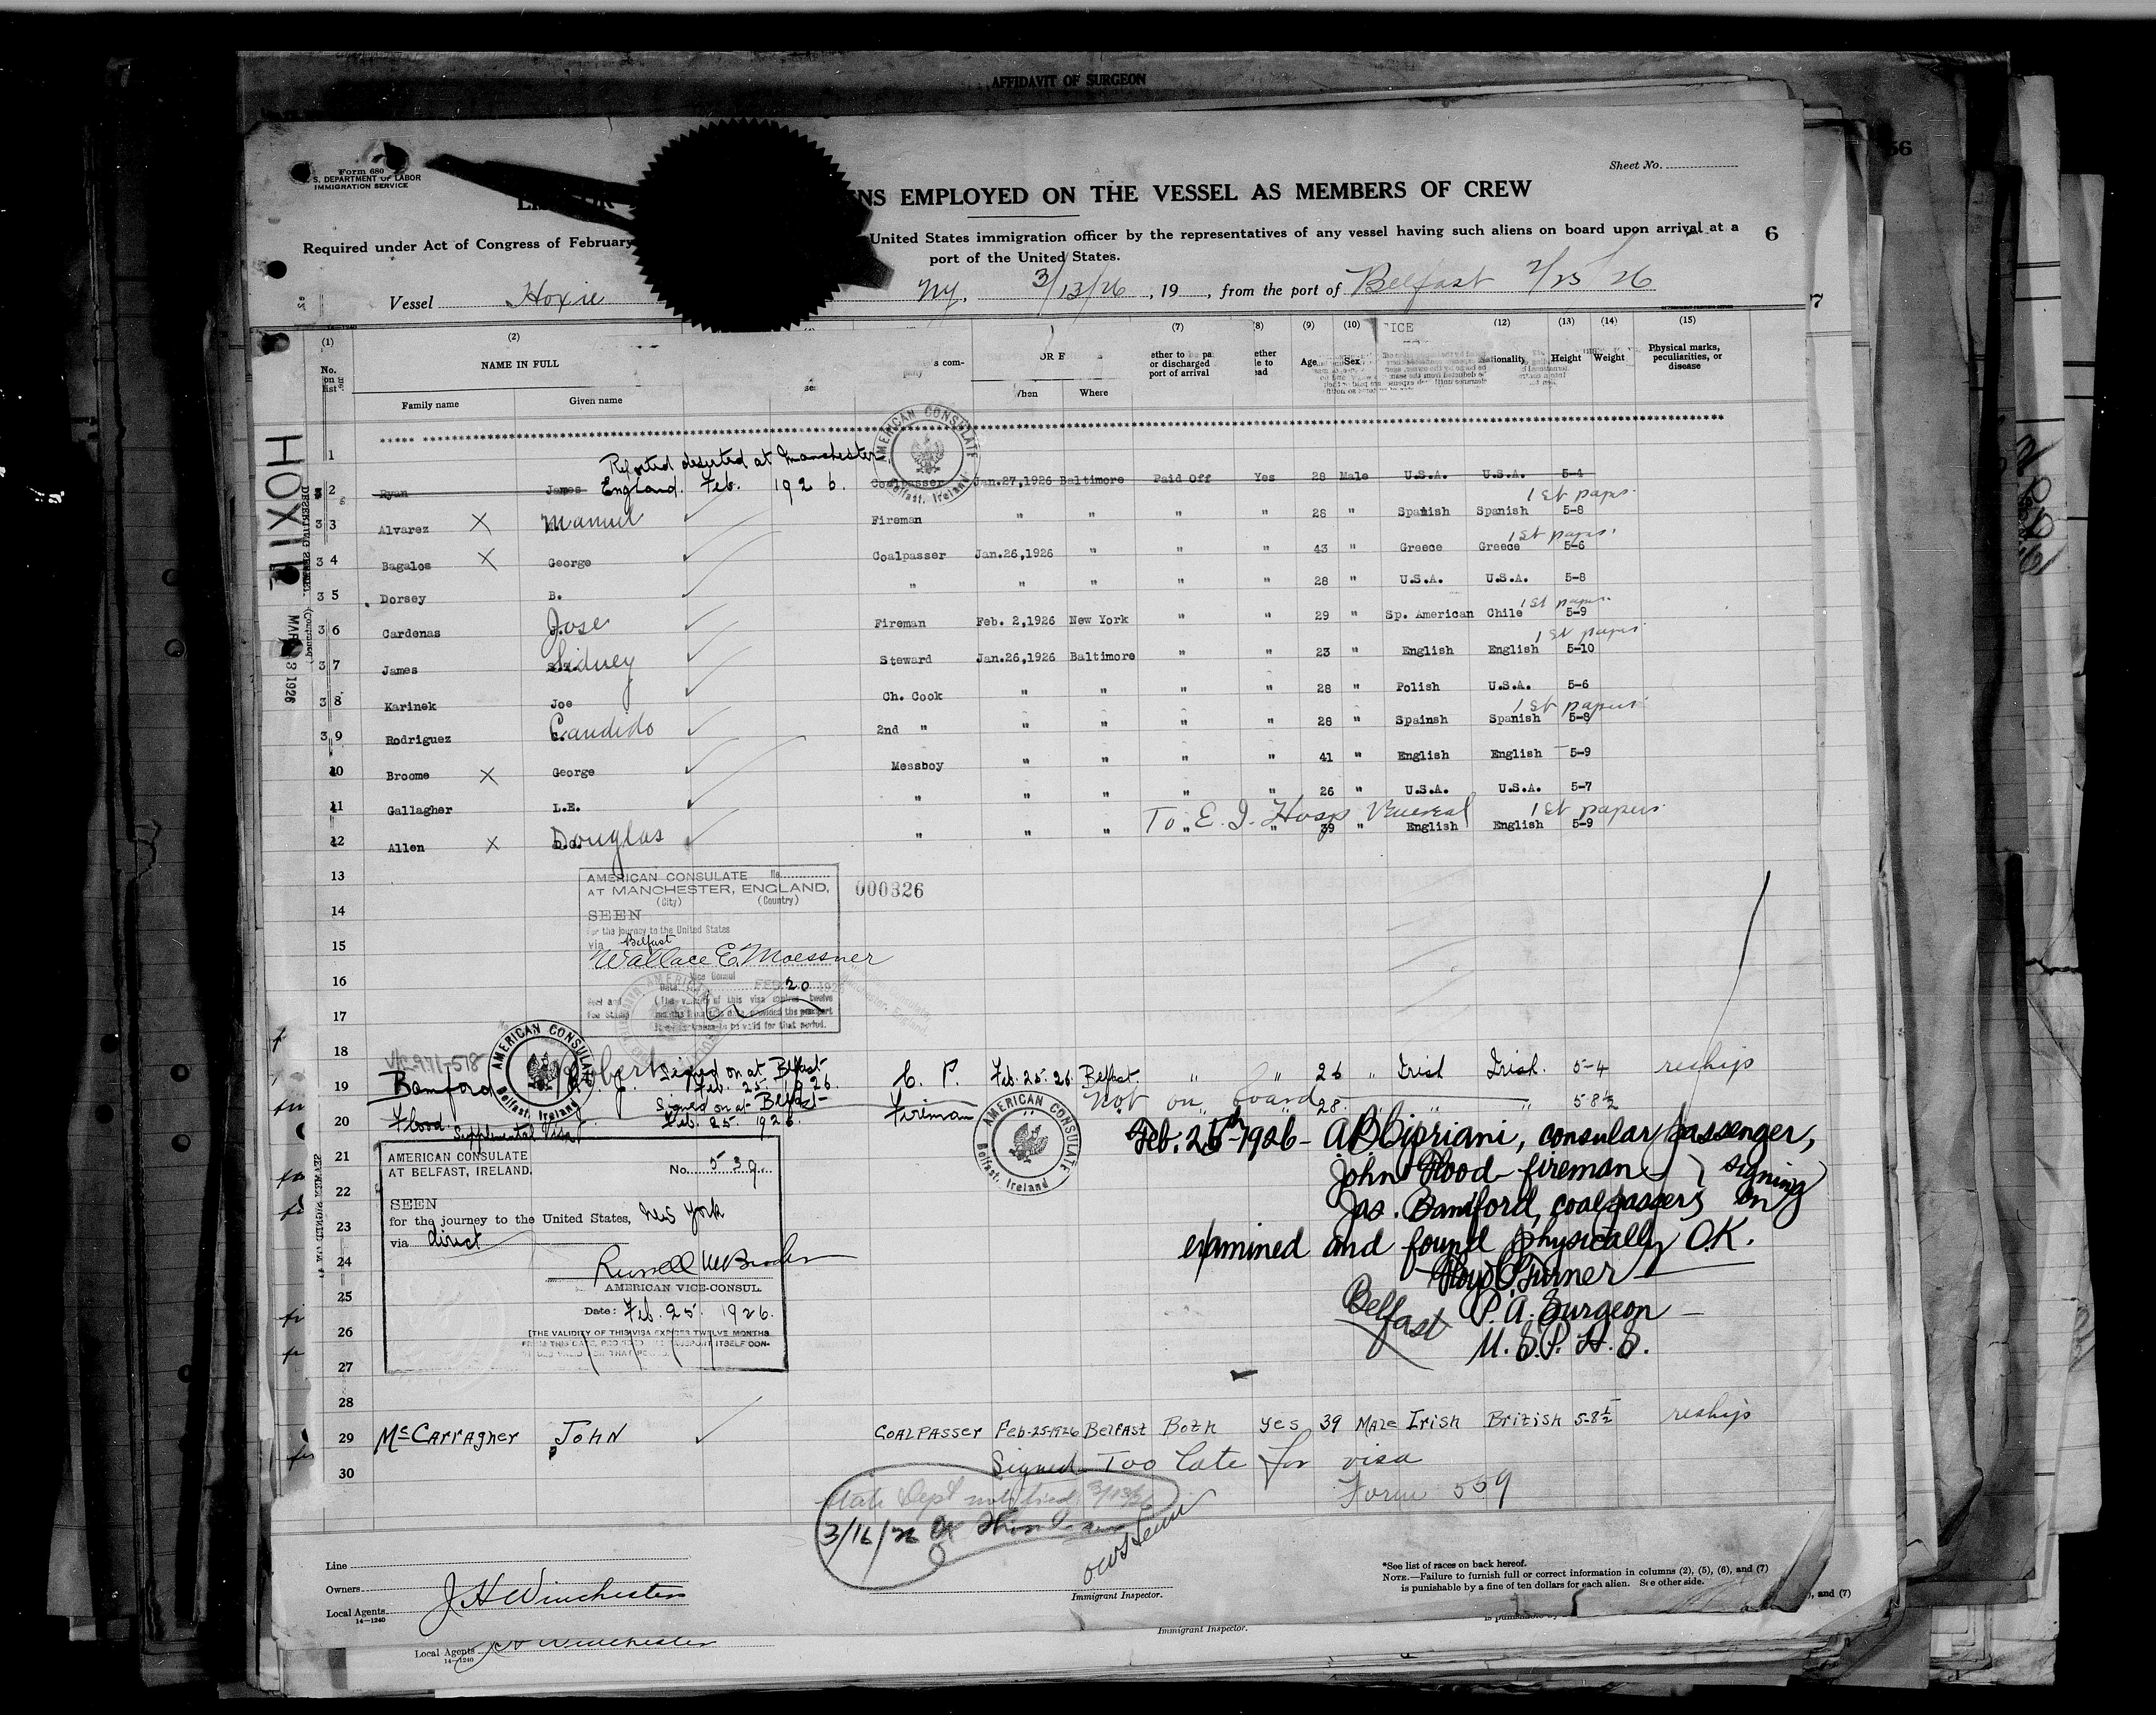 AFFIDAVIT OF SURGEON
Form 680
S. DEPARTMENT OF LABOR
IMMIGRATION SERVICE
Sheet No.
NS EMPLOYED ON THE VESSEL AS MEMBERS OF CREW
Required under Act of Congress of February
United States immigration officer by the representatives of any vessel having such aliens on board upon arrival at a
port of the United States.
6
Vessel Hoxie NY, 3/13/26, 19, from the port of Belfast 2/25 26
(1) (2) (7) (8) (9) (10) (12) (13) (14) (15)
No. on list NAME IN FULL Age Sex Nationality Height Weight Physical marks, peculiarities, or disease
Family name Given name When Where
or discharged
port of arrival
HOXIE
1926
1
Reported deserted at Manchester
England. Feb. 1926.
2 Ryan James Coalpasser Jan.27,1926 Baltimore Paid Off Yes 28 Male U.S.A. U.S.A. 5-4
1st papers.
3 3 Alvarez X Manuel Fireman " " " " 28 " Spanish Spanish 5-8
1st papers.
3 4 Bagalos X George Coalpasser Jan.26,1926 " " " 43 " Greece Greece 5-6
3 5 Dorsey B. " " " " " 28 " U.S.A. U.S.A. 5-8
1st papers.
3 6 Cardenas Jose Fireman Feb. 2,1926 New York " " 29 " Sp. American Chile 5-9
1st papers
3 7 James Sidney Steward Jan.26,1926 Baltimore " " 23 " English English 5-10
3 8 Karinek Joe Ch. Cook " " " " 28 " Polish U.S.A. 5-6
1st papers
3 9 Rodriguez Candido 2nd " " " " " 28 " Spainsh Spanish 5-8
10 Broome X George Messboy " " " " 41 " English English 5-9
11 Gallagher L.E. " " " " " 26 " U.S.A. U.S.A. 5-7
To E. I. Hosp Venereal 1st papers
12 Allen X Douglas " " " " " 39 " English English 5-9
13
14
15
16
17
18
AMERICAN CONSULATE No.
AT MANCHESTER, ENGLAND,
(City) (Country)
000326
SEEN
for the journey to the United States
via Belfast
Wallace E. Moessner
Vice Consul
Date FEB 20 1926
AMERICAN CONSULATE
Belfast, Ireland
19 Bamford Robert J. Signed on at Belfast Feb. 25. 1926. C. P. Feb. 25. 26. Belfast. " " 26 " Irish Irish. 5-4 reship
20 Flood. Signed on at Belfast Feb. 25. 1926. Fireman Not on board 28. " " 5-8½
Supplemental Visa
21
22
23
24
25
26
27
28
AMERICAN CONSULATE
AT BELFAST, IRELAND.
No. 539.
SEEN
for the journey to the United States, New York
via direct
AMERICAN VICE-CONSUL.
Date: Feb. 25. 1926.
[THE VALIDITY OF THIS VISA EXPIRES TWELVE MONTHS
AMERICAN CONSULATE
Belfast, Ireland
Feb. 25th 1926 - A.B. Cipriani, consular passenger,
John Flood fireman
Jas. Bamford, coalpassers } signing on
examined and found physically O.K.
Floyd C. Turner
P. A. Surgeon
Belfast
U. S. P. H. S.
29 McCarragher John Coalpasser Feb-25-1926 Belfast Both yes 39 Male Irish British 5-8½ reship
30
Signed Too late for visa
Form 559
State Dept notified 3/13/26
3/16/26
Line
Owners
Local Agents J H Winchester
14-1240
Immigrant Inspector.
*See list of races on back hereof.
NOTE.—Failure to furnish full or correct information in columns (2), (5), (6), and (7)
is punishable by a fine of ten dollars for each alien. See other side.
, and (7)
Local Agents
14-1240
Immigrant Inspector.